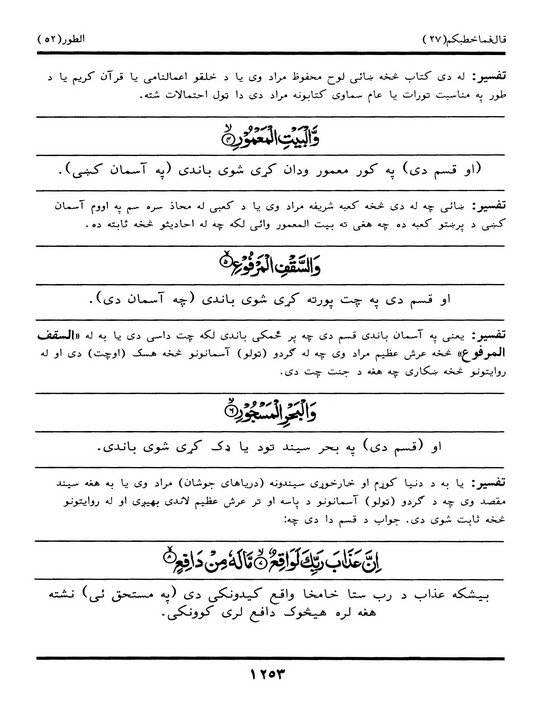 قال فما خطبکم (۲۷) الطور (۵۲)
تفسیر: له دې کتاب څخه ښائي لوح محفوظ مراد وي یا د خلقو اعمالنامې یا قرآن کریم یا د
طور په مناسبت تورات یا عام سماوي کتابونه مراد دي دا ټول احتمالات شته.
وَّالْبَیْتِ الْمَعْمُوْرِ ۙ﴿۴﴾
(او قسم دی) په کور معمور ودان کړی شوی باندې (په آسمان کښې).
تفسیر: ښائي چه له دې څخه کعبه شریفه مراد وي یا د کعبې له محاذ سره سم په اووم آسمان
کښې د پرښتو کعبه ده چه هغې ته بیت المعمور وائي لکه چه له احادیثو څخه ثابته ده.
وَالسَّقْفِ الْمَرْفُوْعِ ۙ﴿۵﴾
او قسم دی په چت پورته کړی شوی باندې (چه آسمان دی).
تفسیر: یعنې په آسمان باندې قسم دی چه پر ځمکې باندې لکه چت داسې دی یا به له «السقف
المرفوع» څخه عرش عظیم مراد وي چه له گردو (ټولو) آسمانونو څخه هسک (اوچت) دی او له
روایتونو څخه ښکاري چه هغه د جنت چت دی.
وَالْبَحْرِ الْمَسْجُوْرِ ۙ﴿۶﴾
او (قسم دی) په بحر سیند تود یا ډک کړی شوی باندې.
تفسیر: یا به د دنیا کوړم او خارخوړي سیندونه (دریاهای جوشان) مراد وي یا به هغه سیند
مقصد وي چه د گردو (ټولو) آسمانونو د پاسه او تر عرش عظیم لاندې بهیږي او له روایتونو
څخه ثابت شوی دی. جواب د قسم دا دی چه:
اِنَّ عَذَابَ رَبِّكَ لَوَاقِعٌ ۙ﴿۷﴾ مَّا لَهٗ مِنْ دَافِعٍ ۙ﴿۸﴾
بیشکه عذاب د رب ستا خامخا واقع کیدونکی دی (په مستحق ئې) نشته
هغه لره هیڅوک دافع لرې کوونکی.
۱۲۵۳